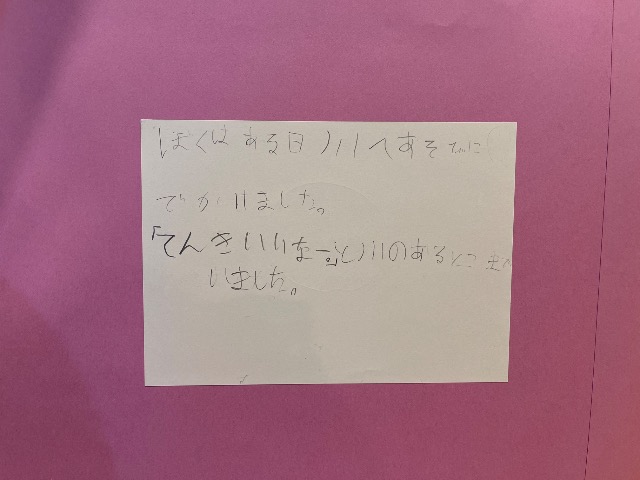 ぼくはある日川へあそびに
でかけました。
「てんきいいなー。」と川のあるとこまで
いました。